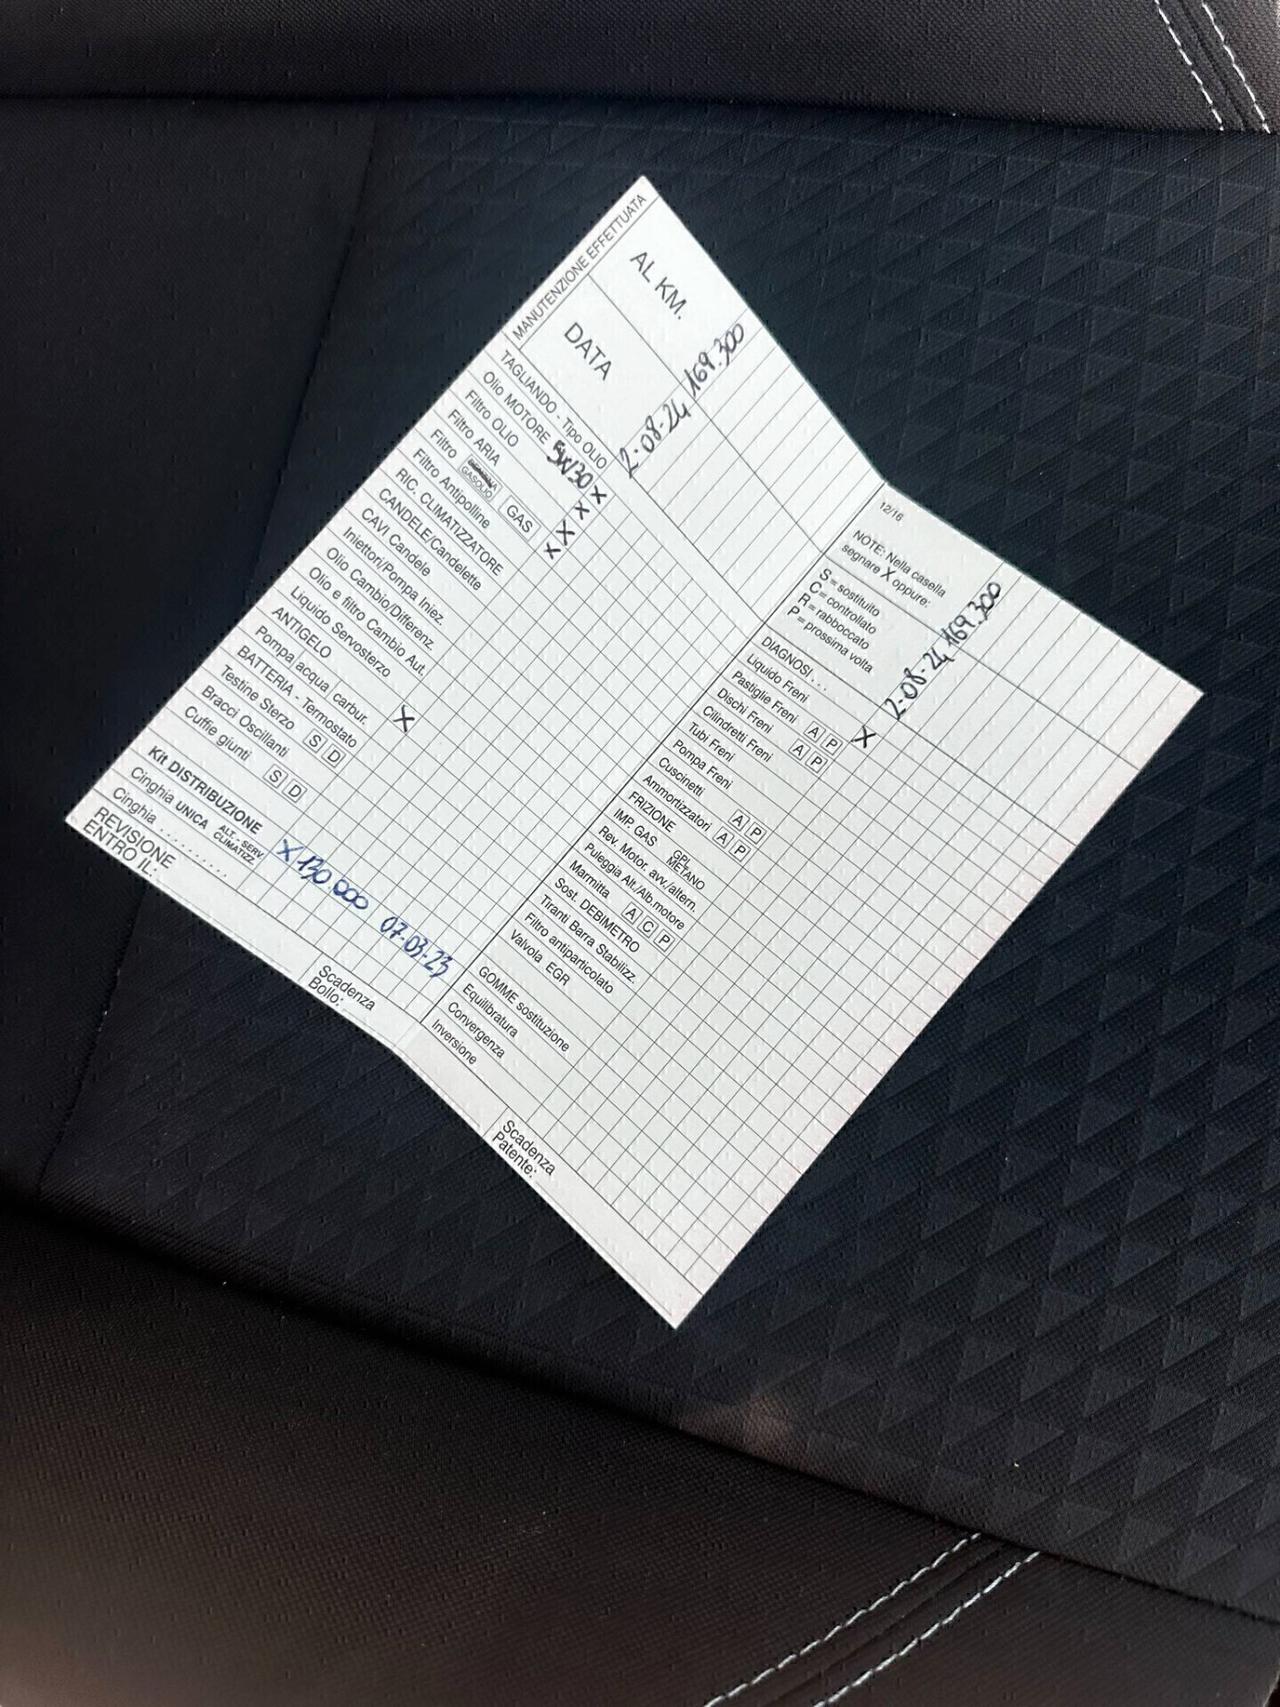 MANUTENZIONE EFFETTUATA
AL KM.
169.300
DATA
2-08-24
TAGLIANDO - Tipo OLIO
Olio MOTORE 5W30 X
Filtro OLIO X
Filtro ARIA X
Filtro GASOLIO GAS X
Filtro Antipolline
RIC. CLIMATIZZATORE
CANDELE/Candelette
CAVI Candele
Iniettori/Pompa Iniez.
Olio Cambio/Differenz.
Olio e filtro Cambio Aut.
Liquido Servosterzo
ANTIGELO
Pompa acqua / carbur.
BATTERIA - Termostato X
Testine Sterzo S D
Bracci Oscillanti
Cuffie giunti S D
Kit DISTRIBUZIONE X 130 000 07-03-23
Cinghia UNICA ALT. - SERV. CLIMATIZZ.
Cinghia . . . . . . . . . .
REVISIONE
ENTRO IL:
Scadenza
Bollo:
12/16
NOTE: Nella casella
segnare X oppure:
S = sostituito
C = controllato
R = rabboccato
P = prossima volta
2-08-24 169.300
DIAGNOSI . . .
Liquido Freni X
Pastiglie Freni A P
Dischi Freni A P
Cilindretti Freni
Tubi Freni
Pompa Freni
Cuscinetti A P
Ammortizzatori A P
FRIZIONE
IMP. GAS GPL METANO
Rev. Motor. avv./altern.
Puleggia Alt./Alb.motore
Marmitta A C P
Sost. DEBIMETRO
Tiranti Barra Stabilizz.
Filtro antiparticolato
Valvola EGR
GOMME sostituzione
Equilibratura
Convergenza
Inversione
Scadenza
Patente: